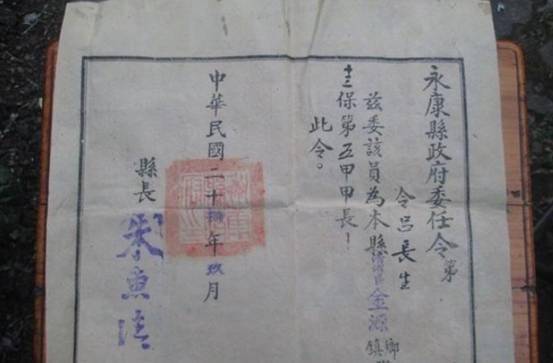 永康縣政府委任令 第
令呂長生
茲委該員為本縣 金源 鄉鎮
十三保第五甲甲長！
此令。
中華民國二十 年玖月
縣長 朱惠清